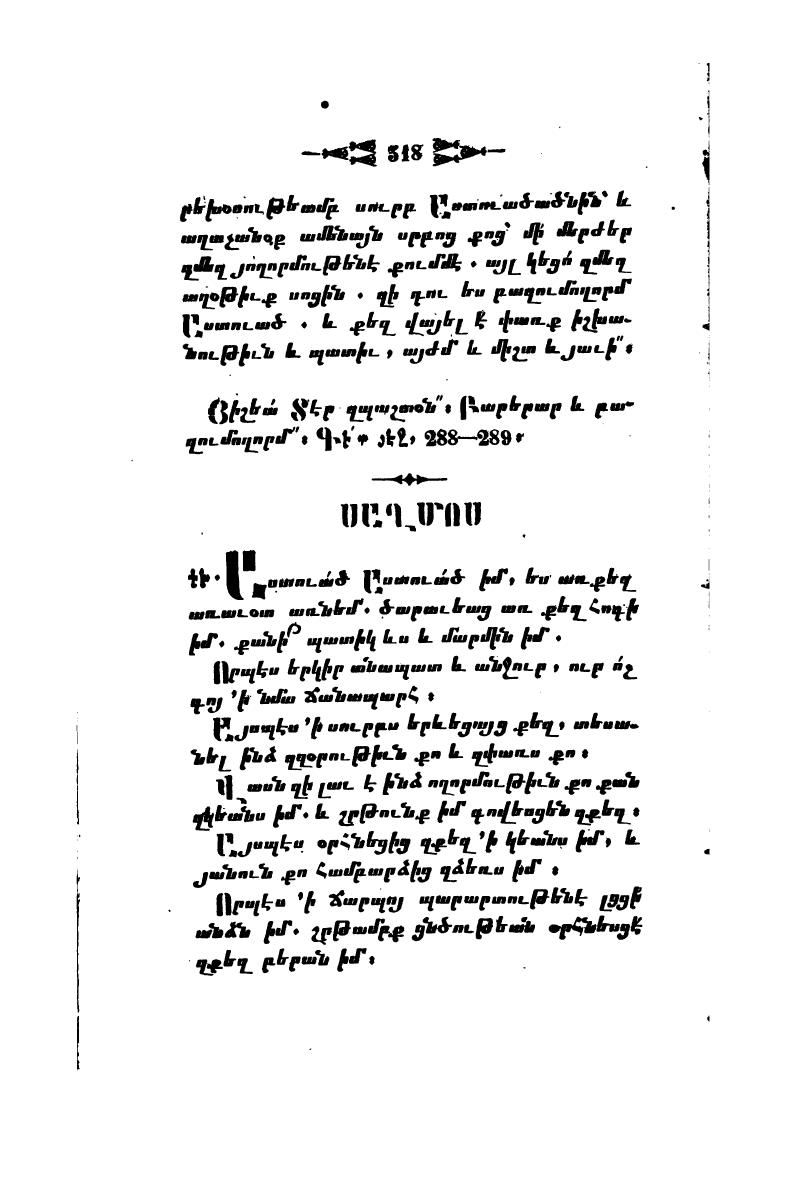 318
րեխօսութեամբ սուրբ Աստուածածնին՝ և
աղաչանօք ամենայն սրբոց քոց՝ մի մերժեր
զմեզ յողորմութենէ քումմէ. այլ կեցո՛ զմեզ
աղօթիւք սոցին. զի դու ես բազումողորմ
Աստուած. և քեզ վայել է փառք իշխա-
նութիւն և պատիւ, այժմ և միշտ և յաւի՟։
Յիշեա՛ Տէր զպաշտօն՟։ Բարերար և բա-
զումողորմ՟։ յէջ, 288—289։
ՍԱՂՄՈՍ
ԿԲ. Աստուա՛ծ Աստուա՛ծ իմ, ես առ քեզ
առաւօտ առնեմ. ծարաւեաց առ քեզ հոգի
իմ. քանի՜ պատիկ ևս և մարմին իմ.
Որպէս երկիր անապատ և անջուր, ուր ո՛չ
գոյ ՚ի նմա ճանապարհ։
Այսպէս ՚ի սուրբս երևեցայց քեզ, տեսա-
նել ինձ զզօրութիւն քո և զփառս քո։
Վասն զի լաւ է ինձ ողորմութիւն քո քան
զկեանս իմ. և շրթունք իմ գովեսցեն զքեզ։
Այսպէս օրհնեցից զքեզ ՚ի կեանս իմ, և
յանուն քո համբարձից զձեռս իմ։
Որպէս ՚ի ճարպոյ պարարտութենէ լցցի
անձն իմ. շրթամբք ցնծութեան օրհնեսցէ
զքեզ բերան իմ։